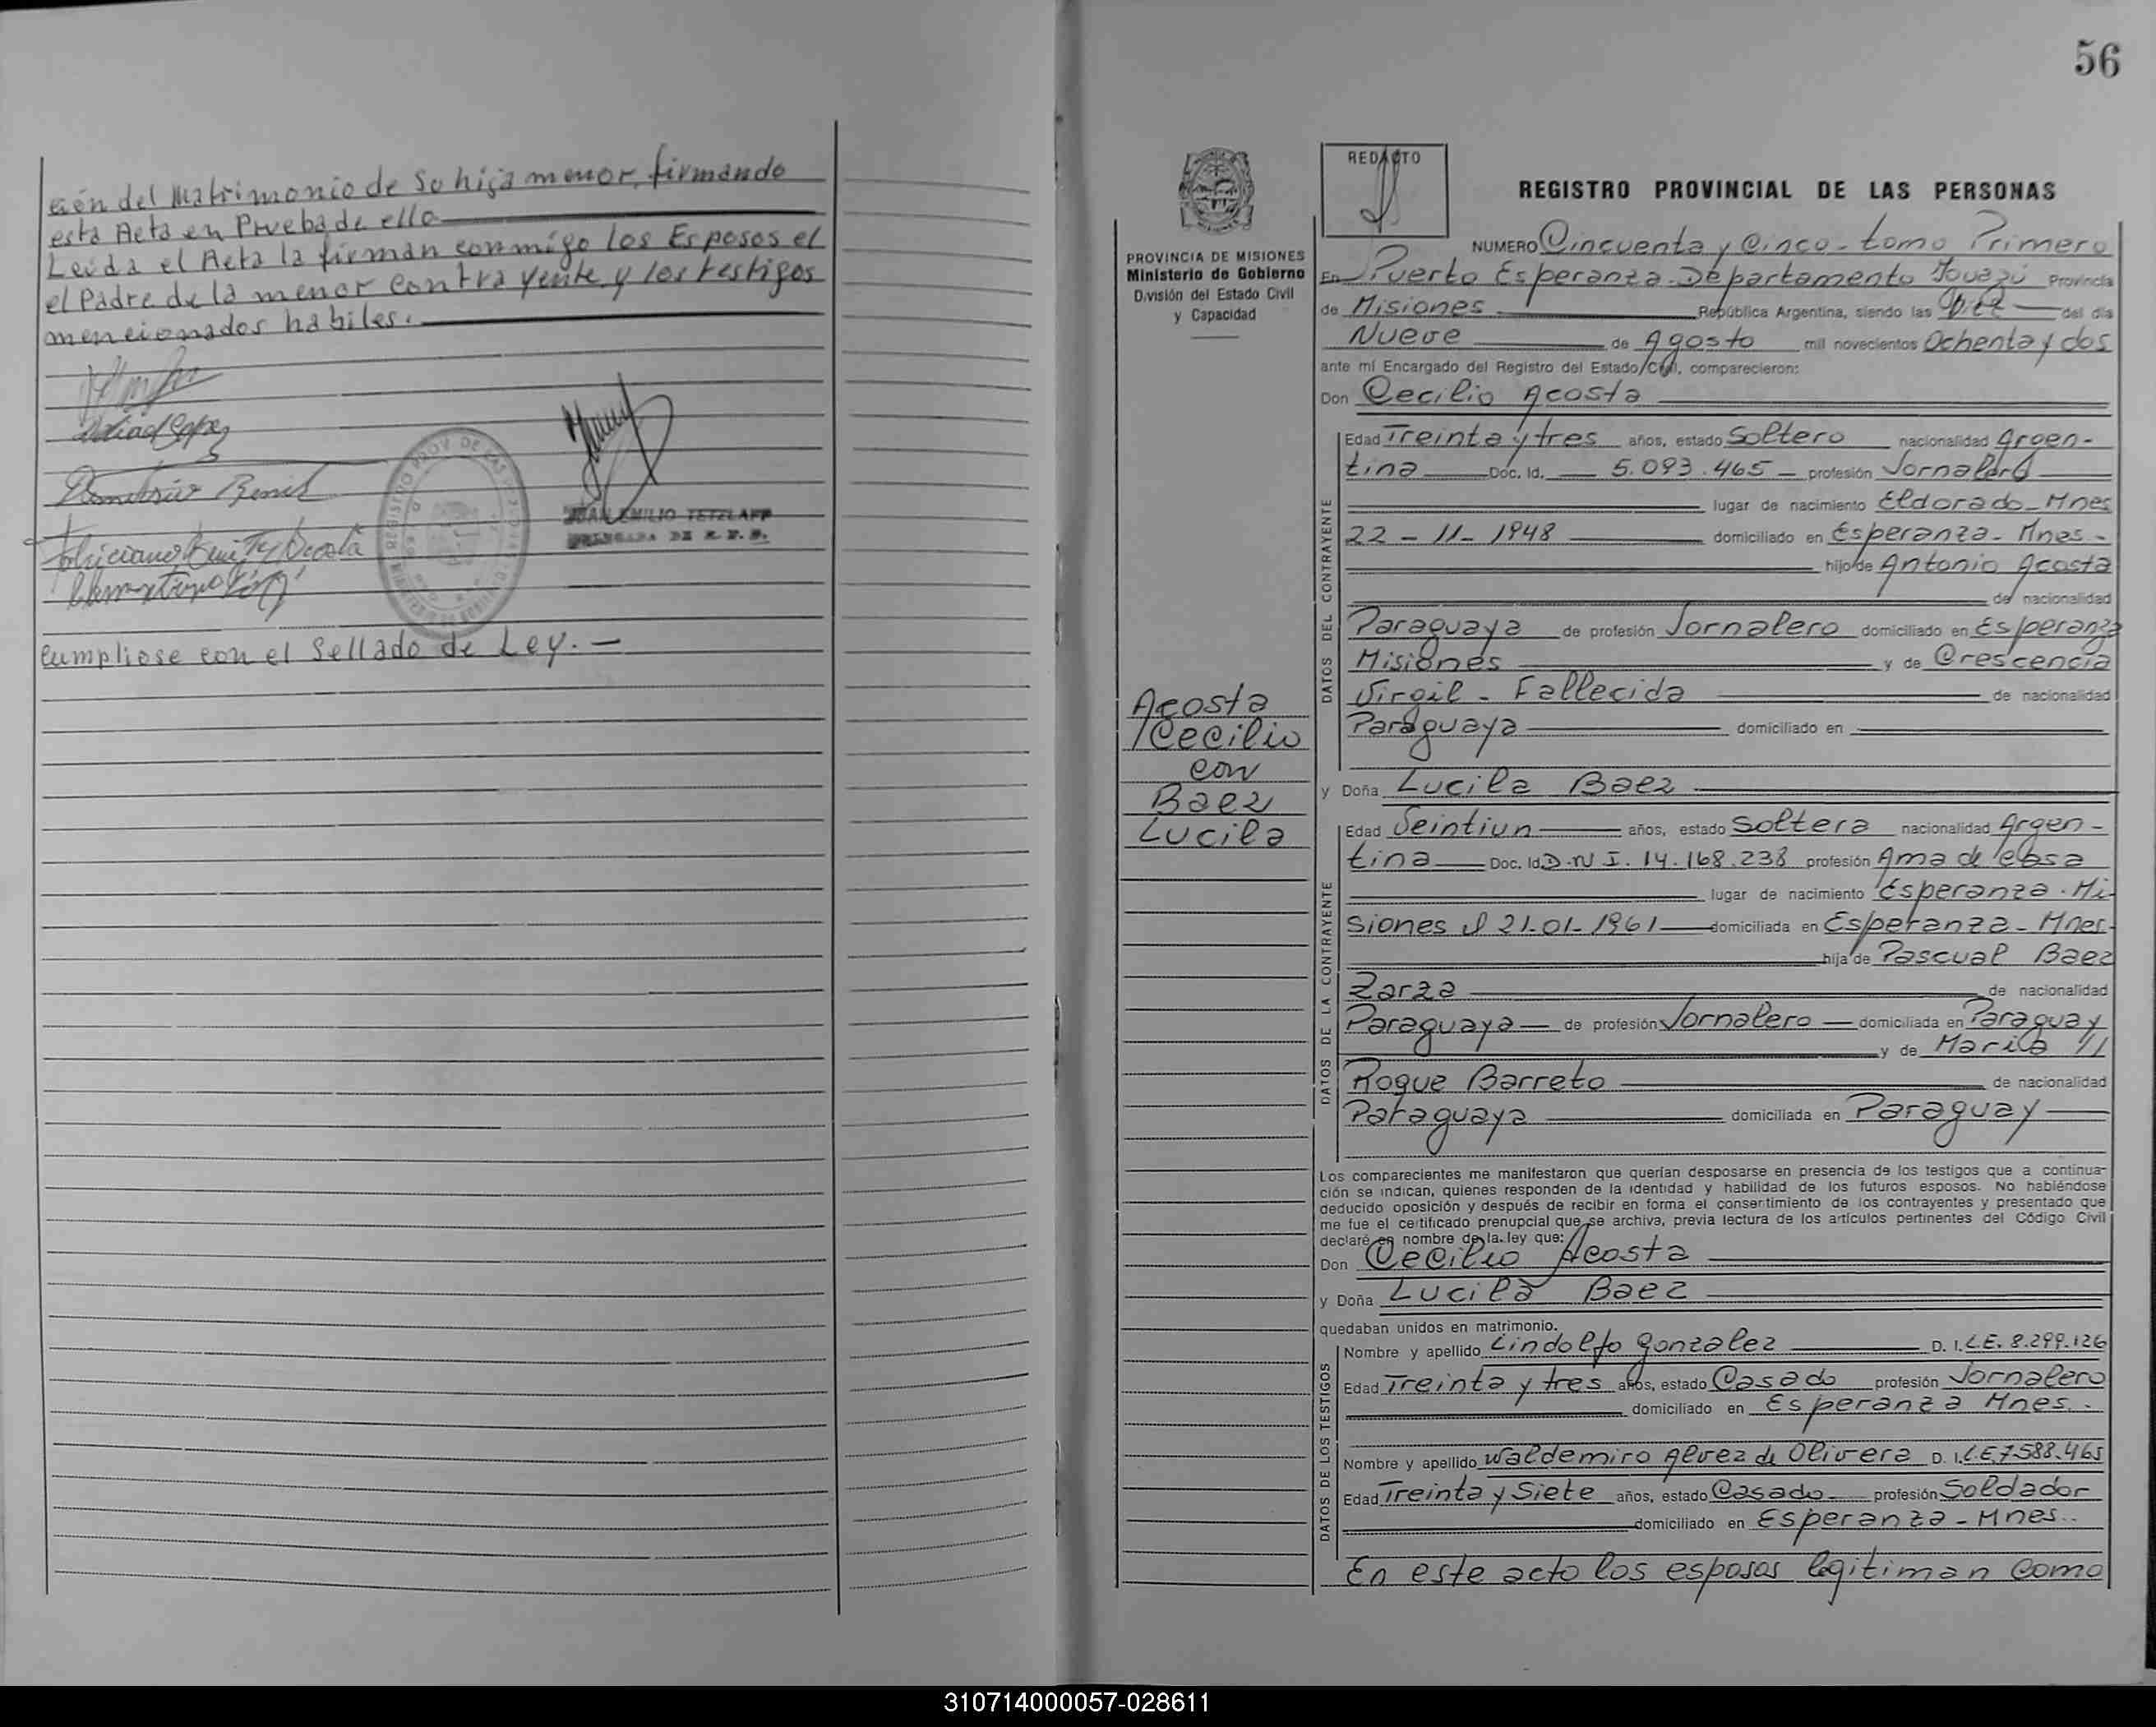 ción del Matrimonio de Su hija menor, firmando
esta Acta en Prueba de ello
Leida el Acta la firman conmigo los Esposos el
el Padre de la menor Contrayente y los testigos
mencionados habiles.
REGISTRO PROV. DE LAS
JUAN EMILIO TETZLAFF
Cumpliose con el Sellado de Ley. —
56
PROVINCIA DE MISIONES
Ministerio de Gobierno
División del Estado Civil
y Capacidad
REDACTO
REGISTRO PROVINCIAL DE LAS PERSONAS
NUMERO Cincuenta y Cinco - tomo Primero
En Puerto Esperanza - Departamento Iguazú Provincia
de Misiones República Argentina, siendo las Diez del día
Nueve de Agosto mil novecientos Ochenta y dos
ante mí Encargado del Registro del Estado Civil, comparecieron:
Don Cecilio Acosta
DATOS DEL CONTRAYENTE
Edad Treinta y tres años, estado Soltero nacionalidad Argen-
tina Doc. Id. 5.093.465 profesión Jornalero
lugar de nacimiento Eldorado - Mnes
22 - 11 - 1948 domiciliado en Esperanza - Mnes -
hijo de Antonio Acosta
de nacionalidad
Paraguaya de profesión Jornalero domiciliado en Esperanza
Misiones y de Crescencia
Virgil - Fallecida de nacionalidad
Paraguaya domiciliado en
Acosta
Cecilio
con
Baez
Lucila
y Doña Lucila Baez
DATOS DE LA CONTRAYENTE
Edad Veintiun años, estado Soltera nacionalidad Argen-
tina Doc. Id. D.N.I. 14.168.238 profesión Ama de casa
lugar de nacimiento Esperanza - Mi-
siones el 21-01-1961 domiciliada en Esperanza - Mnes -
hija de Pascual Baez
Zarza de nacionalidad
Paraguaya de profesión Jornalero domiciliada en Paraguay
y de Maria //
Roque Barreto de nacionalidad
Paraguaya domiciliada en Paraguay
Los comparecientes me manifestaron que querían desposarse en presencia de los testigos que a continua-
ción se indican, quienes responden de la identidad y habilidad de los futuros esposos. No habiéndose
deducido oposición y después de recibir en forma el consentimiento de los contrayentes y presentado que
me fue el certificado prenupcial que se archiva, previa lectura de los artículos pertinentes del Código Civil
declaré en nombre de la ley que:
Don Cecilio Acosta
y Doña Lucila Baez
quedaban unidos en matrimonio.
DATOS DE LOS TESTIGOS
Nombre y apellido Lindolfo Gonzalez D. I. L.E. 8.299.126
Edad Treinta y tres años, estado Casado profesión Jornalero
domiciliado en Esperanza Mnes. -
Nombre y apellido Waldemiro Alvez de Olivera D. I. L.E. 7.588.465
Edad Treinta y Siete años, estado Casado profesión Soldador
domiciliado en Esperanza - Mnes.
En este acto los esposos legitiman como
310714000057-028611